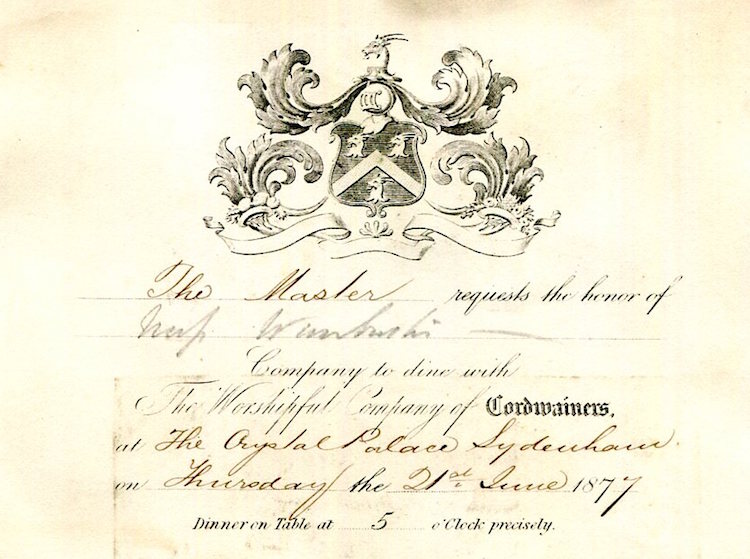 The Master requests the honor of
Miss
Company to dine with
The Worshipful Company of Cordwainers,
at The Crystal Palace Sydenham.
on Thursday the 21st June 1877
Dinner on Table at 5 o'Clock precisely.